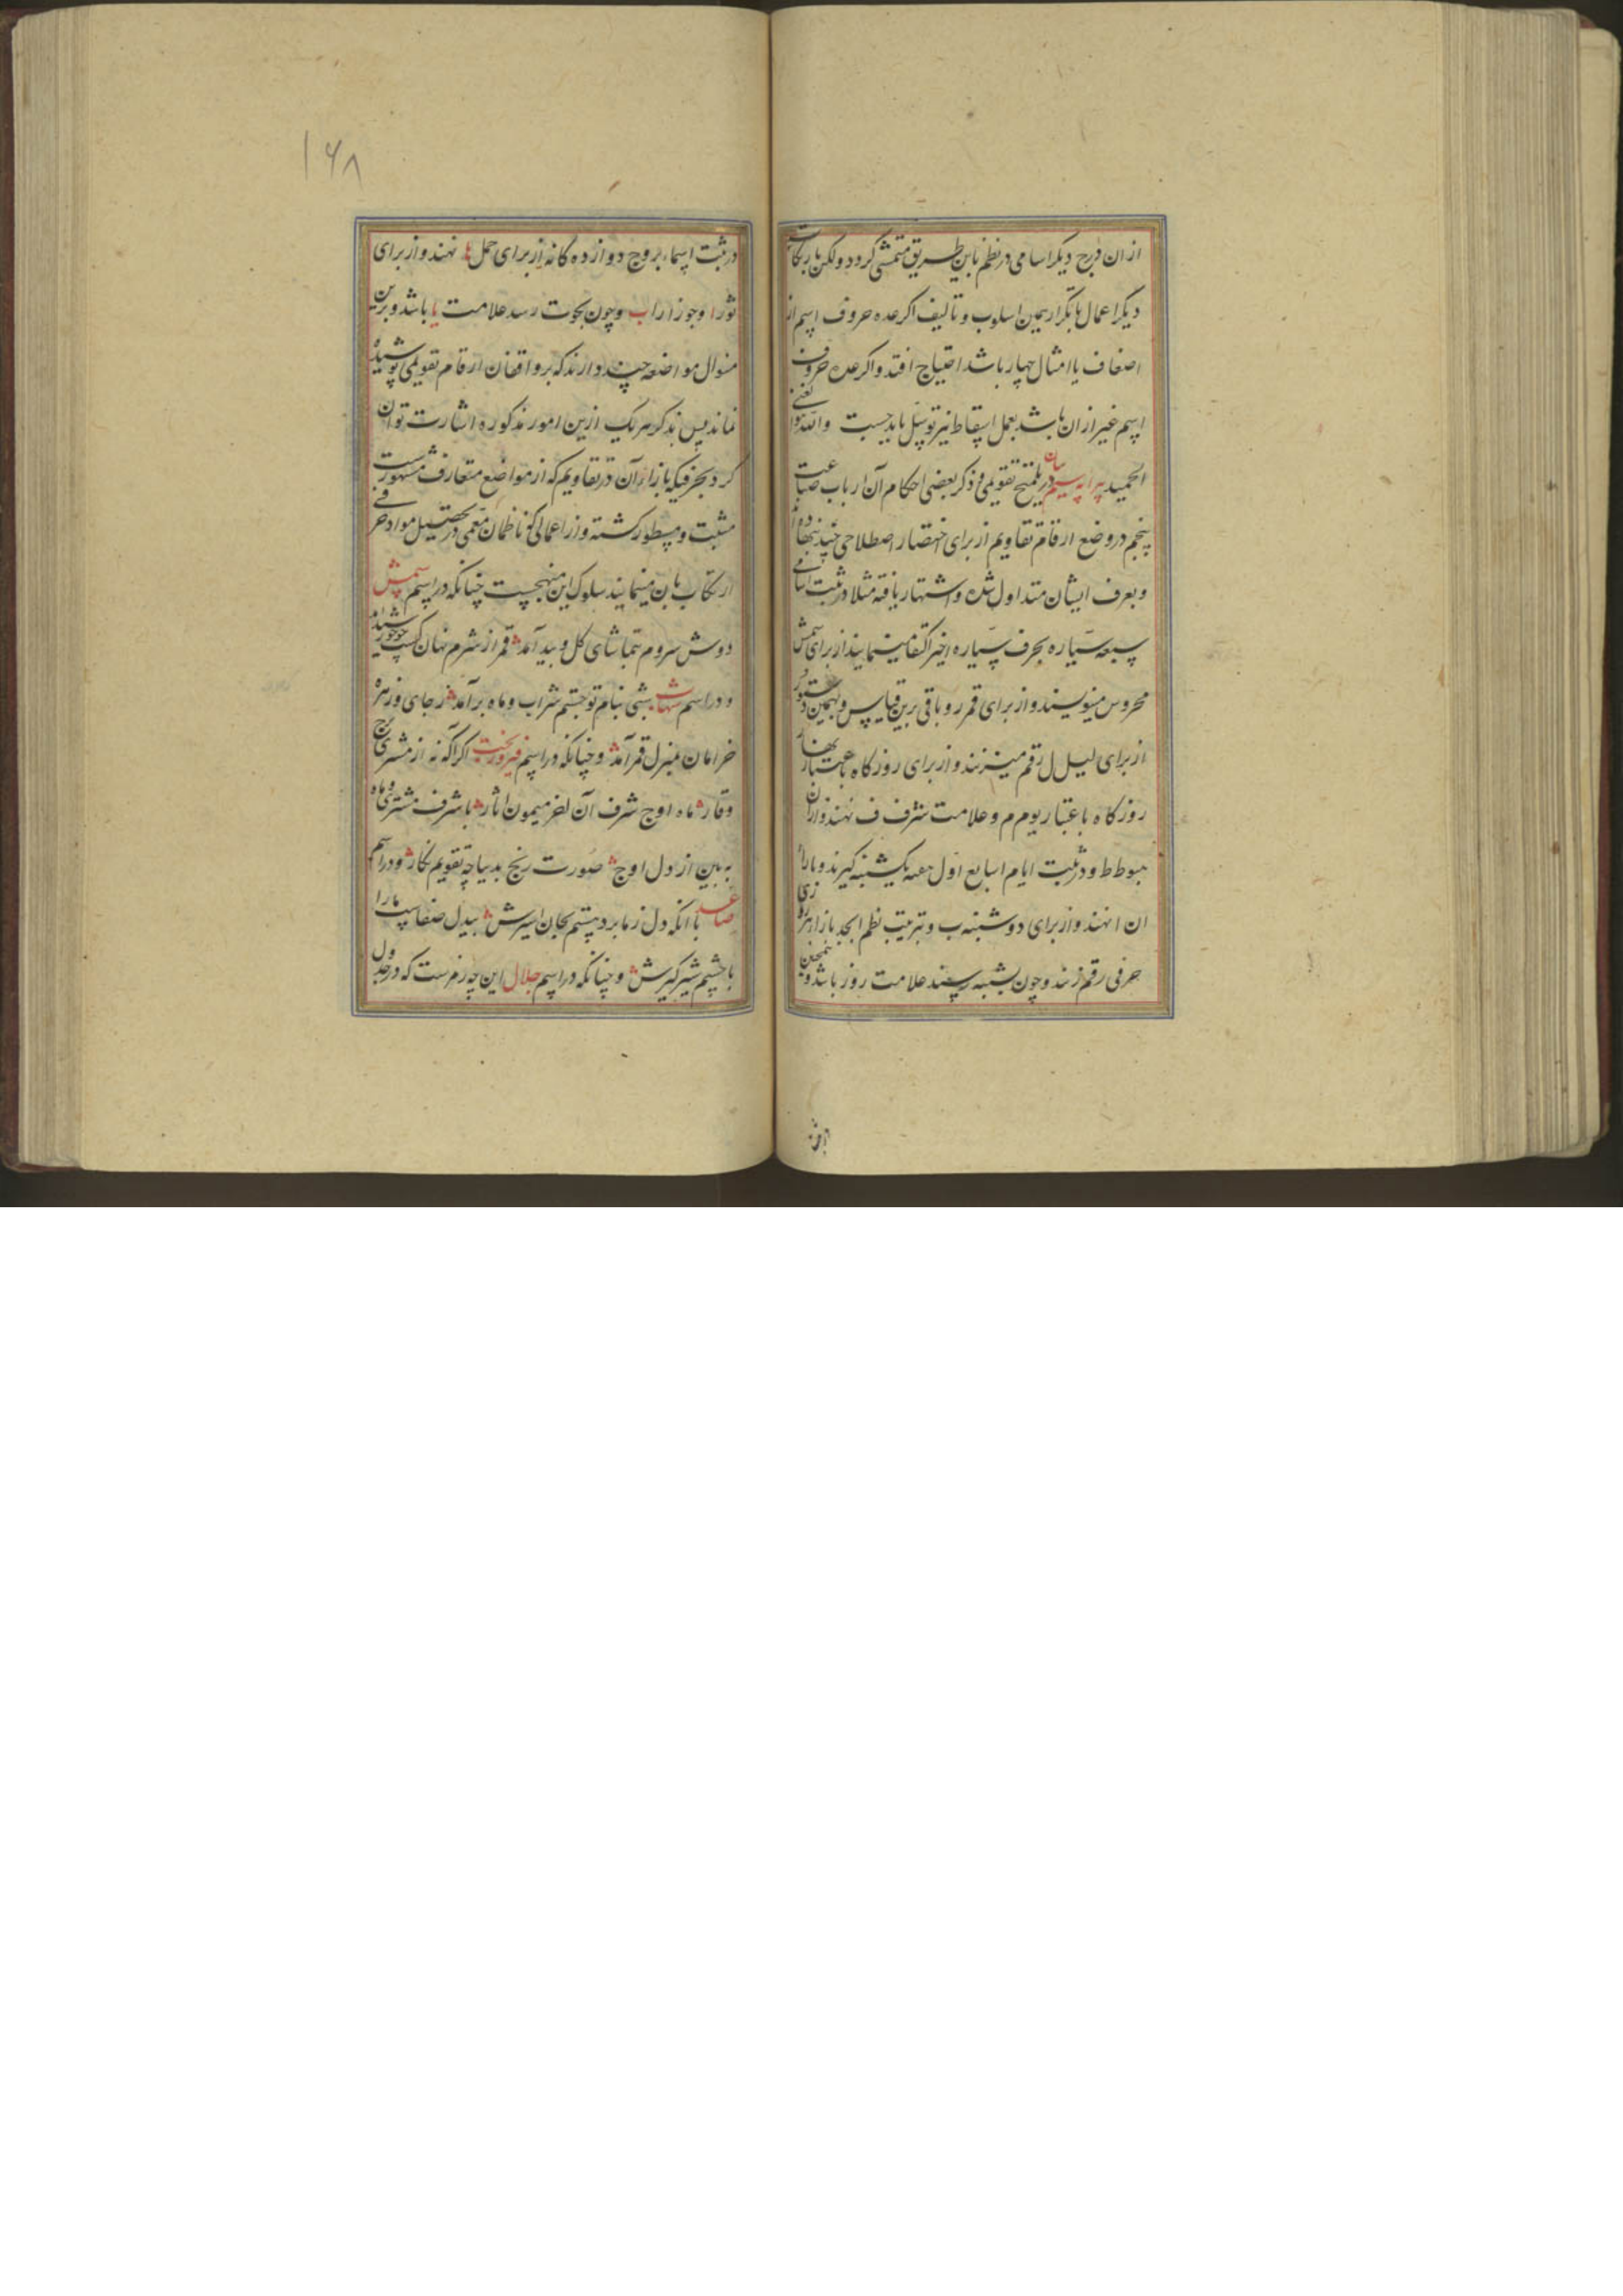 ازان فرح دیکر اسامی در نظم باین طریق متمشی کرود ولکن بارتکاب
دیکر اعمال یا بتکرار همین اسلوب و تالیف اکر عده حروف اسم از
اضعاف یا امثال چهار باشد احتیاج افتد واکر عده حروف
اسم غیر ازان باشد بعمل اسقاط نیز توسل باید جست والله هو
الحمید پیرایه سیم در بیان تلمیح تقویمی و ذکر بعضی احکام آن ارباب صناعت
تنجیم در وضع ارقام تقاویم از برای اختصار اصطلاحی چند نهاده اند
و بعرف ایشان متداول شده و اشتهار یافته مثلا در ثبت اسامی
سبعه سیاره بحرف سیاره اخیر اکتفا مینمایند از برای شمس
محروس مینویسند و از برای قمر ر و باقی برین قیاس و بهمین دستور
از برای لیل ل رقم میزنند و از برای روزکاه باعتبار نهار
روزکاه باعتبار یوم م و علامت شرف ف نهند و ازان
هبوط ط و در ثبت ایام اسابیع اول هفته یکشنبه کیرند و بازاء
ان ا نهند و از برای دوشنبه ب و بترتیب نظم ابجد بازاء هر روزی
حرفی رقم زنند و چون بشنبه رسند علامت روز باشد و همچنین
در ثبت اسماء بروج دوازده کانه از برای حمل ها نهند و از برای
ثور ا و جوزا را ب و چون بحوت رسد علامت یا باشد و برین
منوال مواضعه چند دارند که بر واقفان ارقام تقویمی پوشیده
نماند پس بذکر هر یک ازین امور مذکوره اشارت توان
کرد بحرفیکه بازاء آن در تقاویم که از مواضع متعارف مشهورست
مثبت و مسطور کشته و از اعمالی که ناظمان معمی در تحصیل مواد حرفی
ارتکاب بان مینمایند سلوک این منهجست چنانکه در اسم شمس
دوش سروم بتماشای کل و بید آمد قمر از شرم نهان کشت چو خورشید آمد
و در اسم شهاب شبی بنام تو جستم شراب و ماه برآمد ز جای و زهره
خرامان بمنزل قمر آمد و چنانکه در اسم فیروزبخت اکر آکه نه از مشتری رخ
وقار ماه اوج شرف آن اختر میمون اثار با شرف مشتری و ماه
به بین از دل اوج صورت رنج بدیباچه تقویم نکار و در اسم
صاعد باانکه دل ز ما برد بستیم بجان اسیرش بیدل صفاست ما را
با چشم شیرکیرش و چنانکه در اسم جلال این چه رمزست که در جدول
۱۶۸